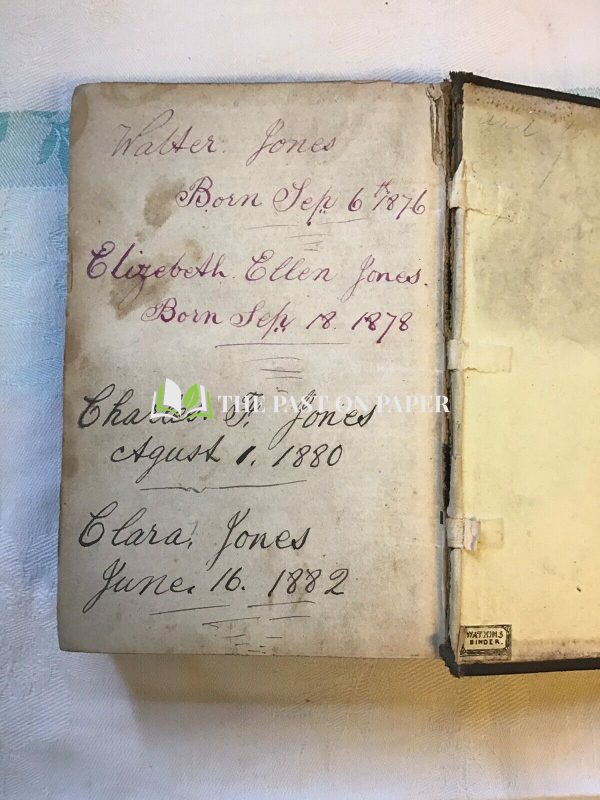 Walter. Jones
Born Sep. 6th 1876
Elizebeth. Ellen Jones
Born Sep. 18. 1878
THE PAST ON PAPER
Charles. F. Jones
Agust 1. 1880
Clara. Jones
June. 16. 1882
WATKINS
BINDER.